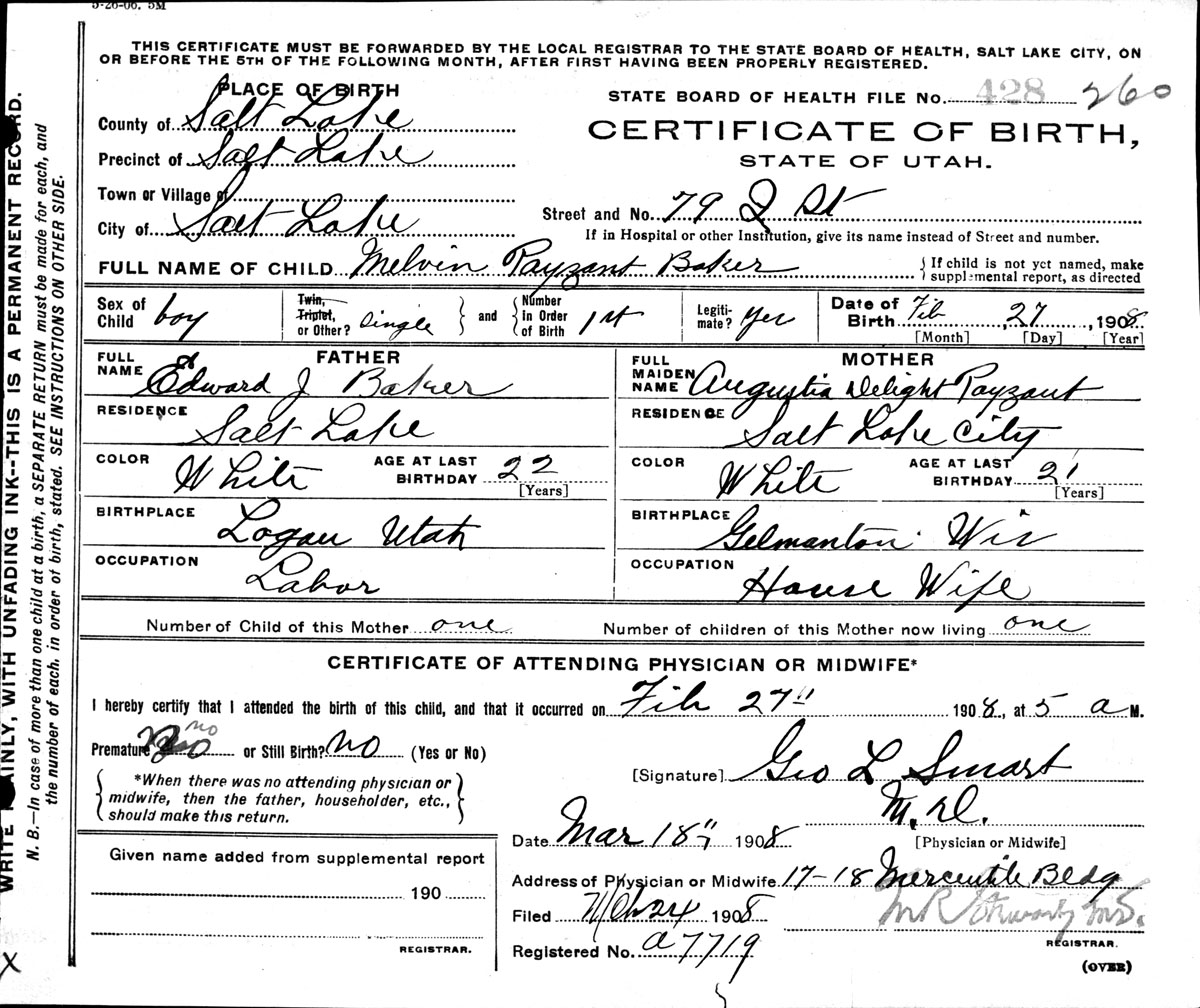 5-26-06. 5M
THIS CERTIFICATE MUST BE FORWARDED BY THE LOCAL REGISTRAR TO THE STATE BOARD OF HEALTH, SALT LAKE CITY, ON
OR BEFORE THE 5TH OF THE FOLLOWING MONTH, AFTER FIRST HAVING BEEN PROPERLY REGISTERED.
PLACE OF BIRTH
County of Salt Lake
Precinct of Salt Lake
Town or Village of
City of Salt Lake
STATE BOARD OF HEALTH FILE No. 428 260
CERTIFICATE OF BIRTH,
STATE OF UTAH.
Street and No. 79 Q St
If in Hospital or other Institution, give its name instead of Street and number.
FULL NAME OF CHILD Melvin Payzant Baker
If child is not yet named, make
supplemental report, as directed
Sex of Child boy
Twin, Triplet, or Other? Single
and
Number in Order of Birth 1st
Legiti-mate? Yes
Date of Birth Feb 27, 1908
[Month] [Day] [Year]
FATHER
FULL NAME Edward J Baker
RESIDENCE Salt Lake
COLOR White AGE AT LAST BIRTHDAY 22
[Years]
BIRTHPLACE Logan Utah
OCCUPATION Labor
MOTHER
FULL MAIDEN NAME Augustia Delight Payzant
RESIDENCE Salt Lake City
COLOR White AGE AT LAST BIRTHDAY 21
[Years]
BIRTHPLACE Gelmanton Wis
OCCUPATION House Wife
Number of Child of this Mother one Number of children of this Mother now living one
CERTIFICATE OF ATTENDING PHYSICIAN OR MIDWIFE*
I hereby certify that I attended the birth of this child, and that it occurred on Feb 27" 1908, at 5 a M.
Premature no or Still Birth? no (Yes or No)
*When there was no attending physician or
midwife, then the father, householder, etc.,
should make this return.
[Signature] Geo L Smart
M.D.
[Physician or Midwife]
Date Mar 18" 1908
Address of Physician or Midwife 17-18 Mercentile Bldg
Filed 24 1908
Registered No. a7719
REGISTRAR.
(OVER)
Given name added from supplemental report
190
REGISTRAR.
WRITE PLAINLY, WITH UNFADING INK--THIS IS A PERMANENT RECORD.
N. B.—In case of more than one child at a birth, a SEPARATE RETURN must be made for each, and
the number of each, in order of birth, stated. SEE INSTRUCTIONS ON OTHER SIDE.
X